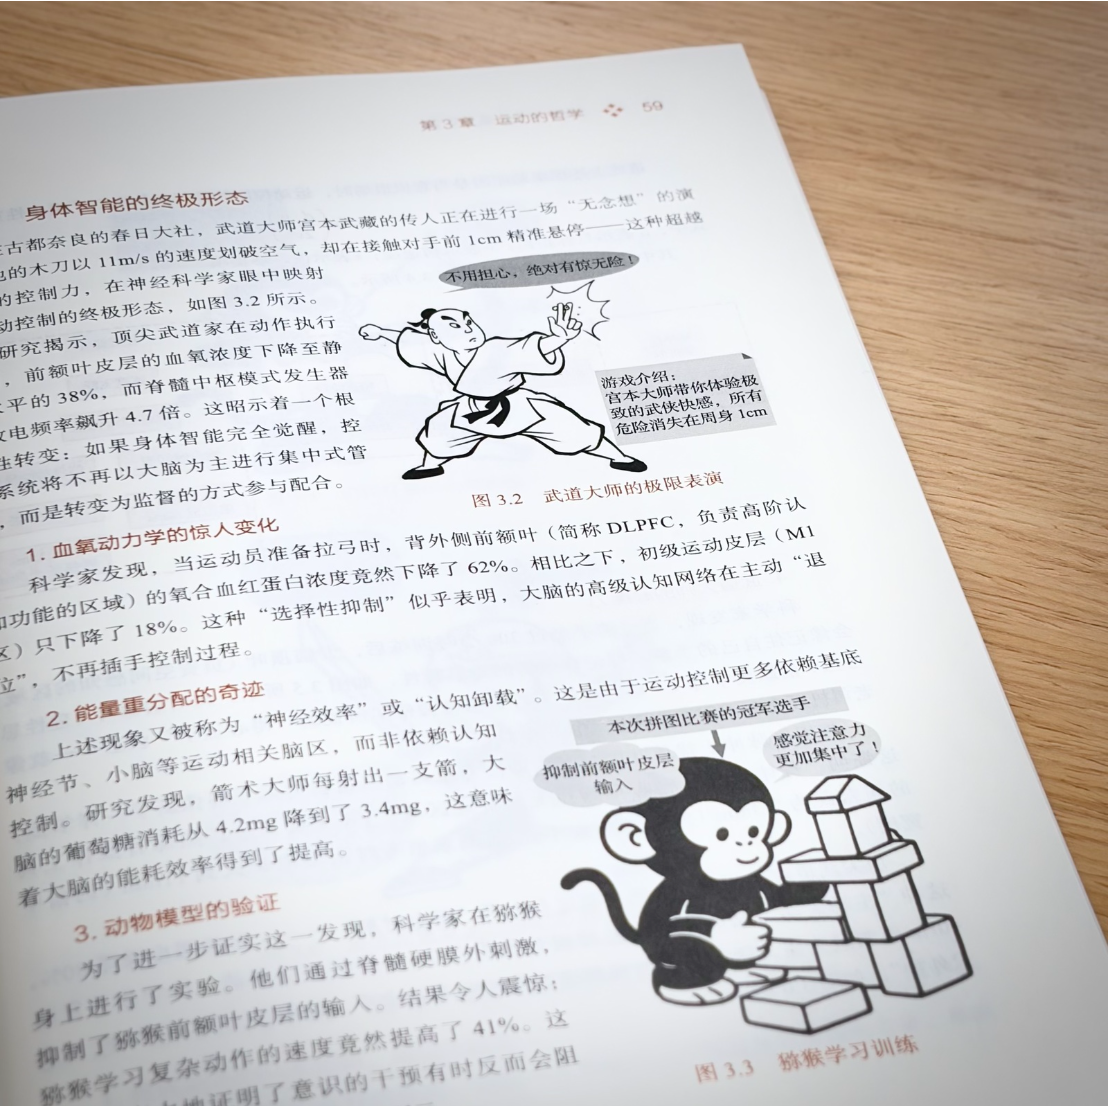 第 3 章 运动的哲学 59
身体智能的终极形态
古都奈良的春日大社，武道大师宫本武藏的传人正在进行一场“无念想”的演
的木刀以 11m/s 的速度划破空气，却在接触对手前 1cm 精准悬停——这种超越
的控制力，在神经科学家眼中映射
动控制的终极形态，如图 3.2 所示。
研究揭示，顶尖武道家在动作执行
，前额叶皮层的血氧浓度下降至静
水平的 38%，而脊髓中枢模式发生器
放电频率飙升 4.7 倍。这昭示着一个根
性转变：如果身体智能完全觉醒，控
系统将不再以大脑为主进行集中式管
，而是转变为监督的方式参与配合。
不用担心，绝对有惊无险！
游戏介绍：
宫本大师带你体验极
致的武侠快感，所有
危险消失在周身 1cm
图 3.2 武道大师的极限表演
1. 血氧动力学的惊人变化
科学家发现，当运动员准备拉弓时，背外侧前额叶（简称 DLPFC，负责高阶认
知功能的区域）的氧合血红蛋白浓度竟然下降了 62%。相比之下，初级运动皮层（M1
区）只下降了 18%。这种“选择性抑制”似乎表明，大脑的高级认知网络在主动“退
位”，不再插手控制过程。
2. 能量重分配的奇迹
上述现象又被称为“神经效率”或“认知卸载”。这是由于运动控制更多依赖基底
神经节、小脑等运动相关脑区，而非依赖认知
控制。研究发现，箭术大师每射出一支箭，大
脑的葡萄糖消耗从 4.2mg 降到了 3.4mg，这意味
着大脑的能耗效率得到了提高。
本次拼图比赛的冠军选手
抑制前额叶皮层
输入
感觉注意力
更加集中了！
3. 动物模型的验证
为了进一步证实这一发现，科学家在猕猴
身上进行了实验。他们通过脊髓硬膜外刺激，
抑制了猕猴前额叶皮层的输入。结果令人震惊：
猕猴学习复杂动作的速度竟然提高了 41%。这
地证明了意识的干预有时反而会阻
图 3.3 猕猴学习训练